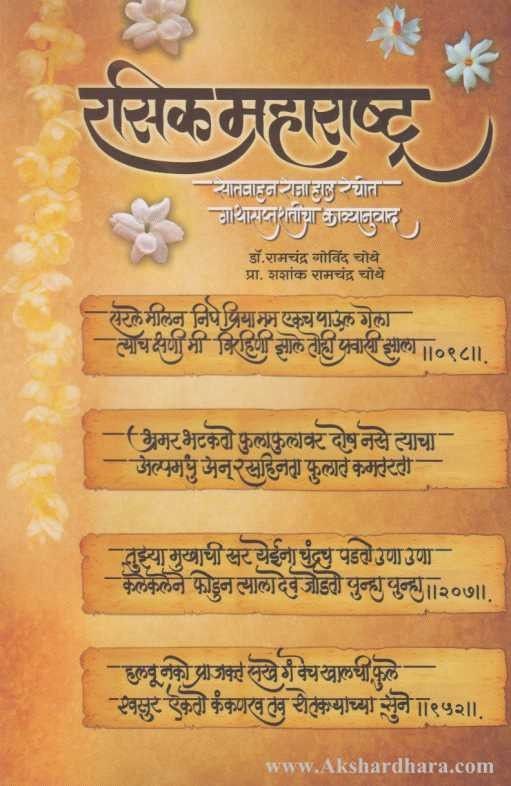 रसिक महाराष्ट्र
सातवाहन राजा हाल रचित
गाथासप्तशतीचा काव्यानुवाद
डॉ. रामचंद्र गोविंद चोथे
प्रा. शशांक रामचंद्र चोथे
सरले मीलन निघे प्रिया मम एकच पाऊल गेला
त्याच क्षणी मी विरहिणी झाले तोही प्रवासी झाला ॥०९८॥.
भ्रमर भटकतो फुलाफुलावर दोष नसे त्याचा
अल्पमधु अन् रसहिनता फुलात कमतरता
तुझ्या मुखाची सर येईना चंद्रच पडतो उणा उणा
कलेकलेने फोडुन त्याला देव जोडतो पुन्हा पुन्हा ॥२०७॥.
हलवू नको प्राजक्त सखे गं वेच खालची फुले
श्वसुर ऐकतो कंकणरव तव शेतकऱ्याच्या सुने ॥९५२॥.
www.Akshardhara.com